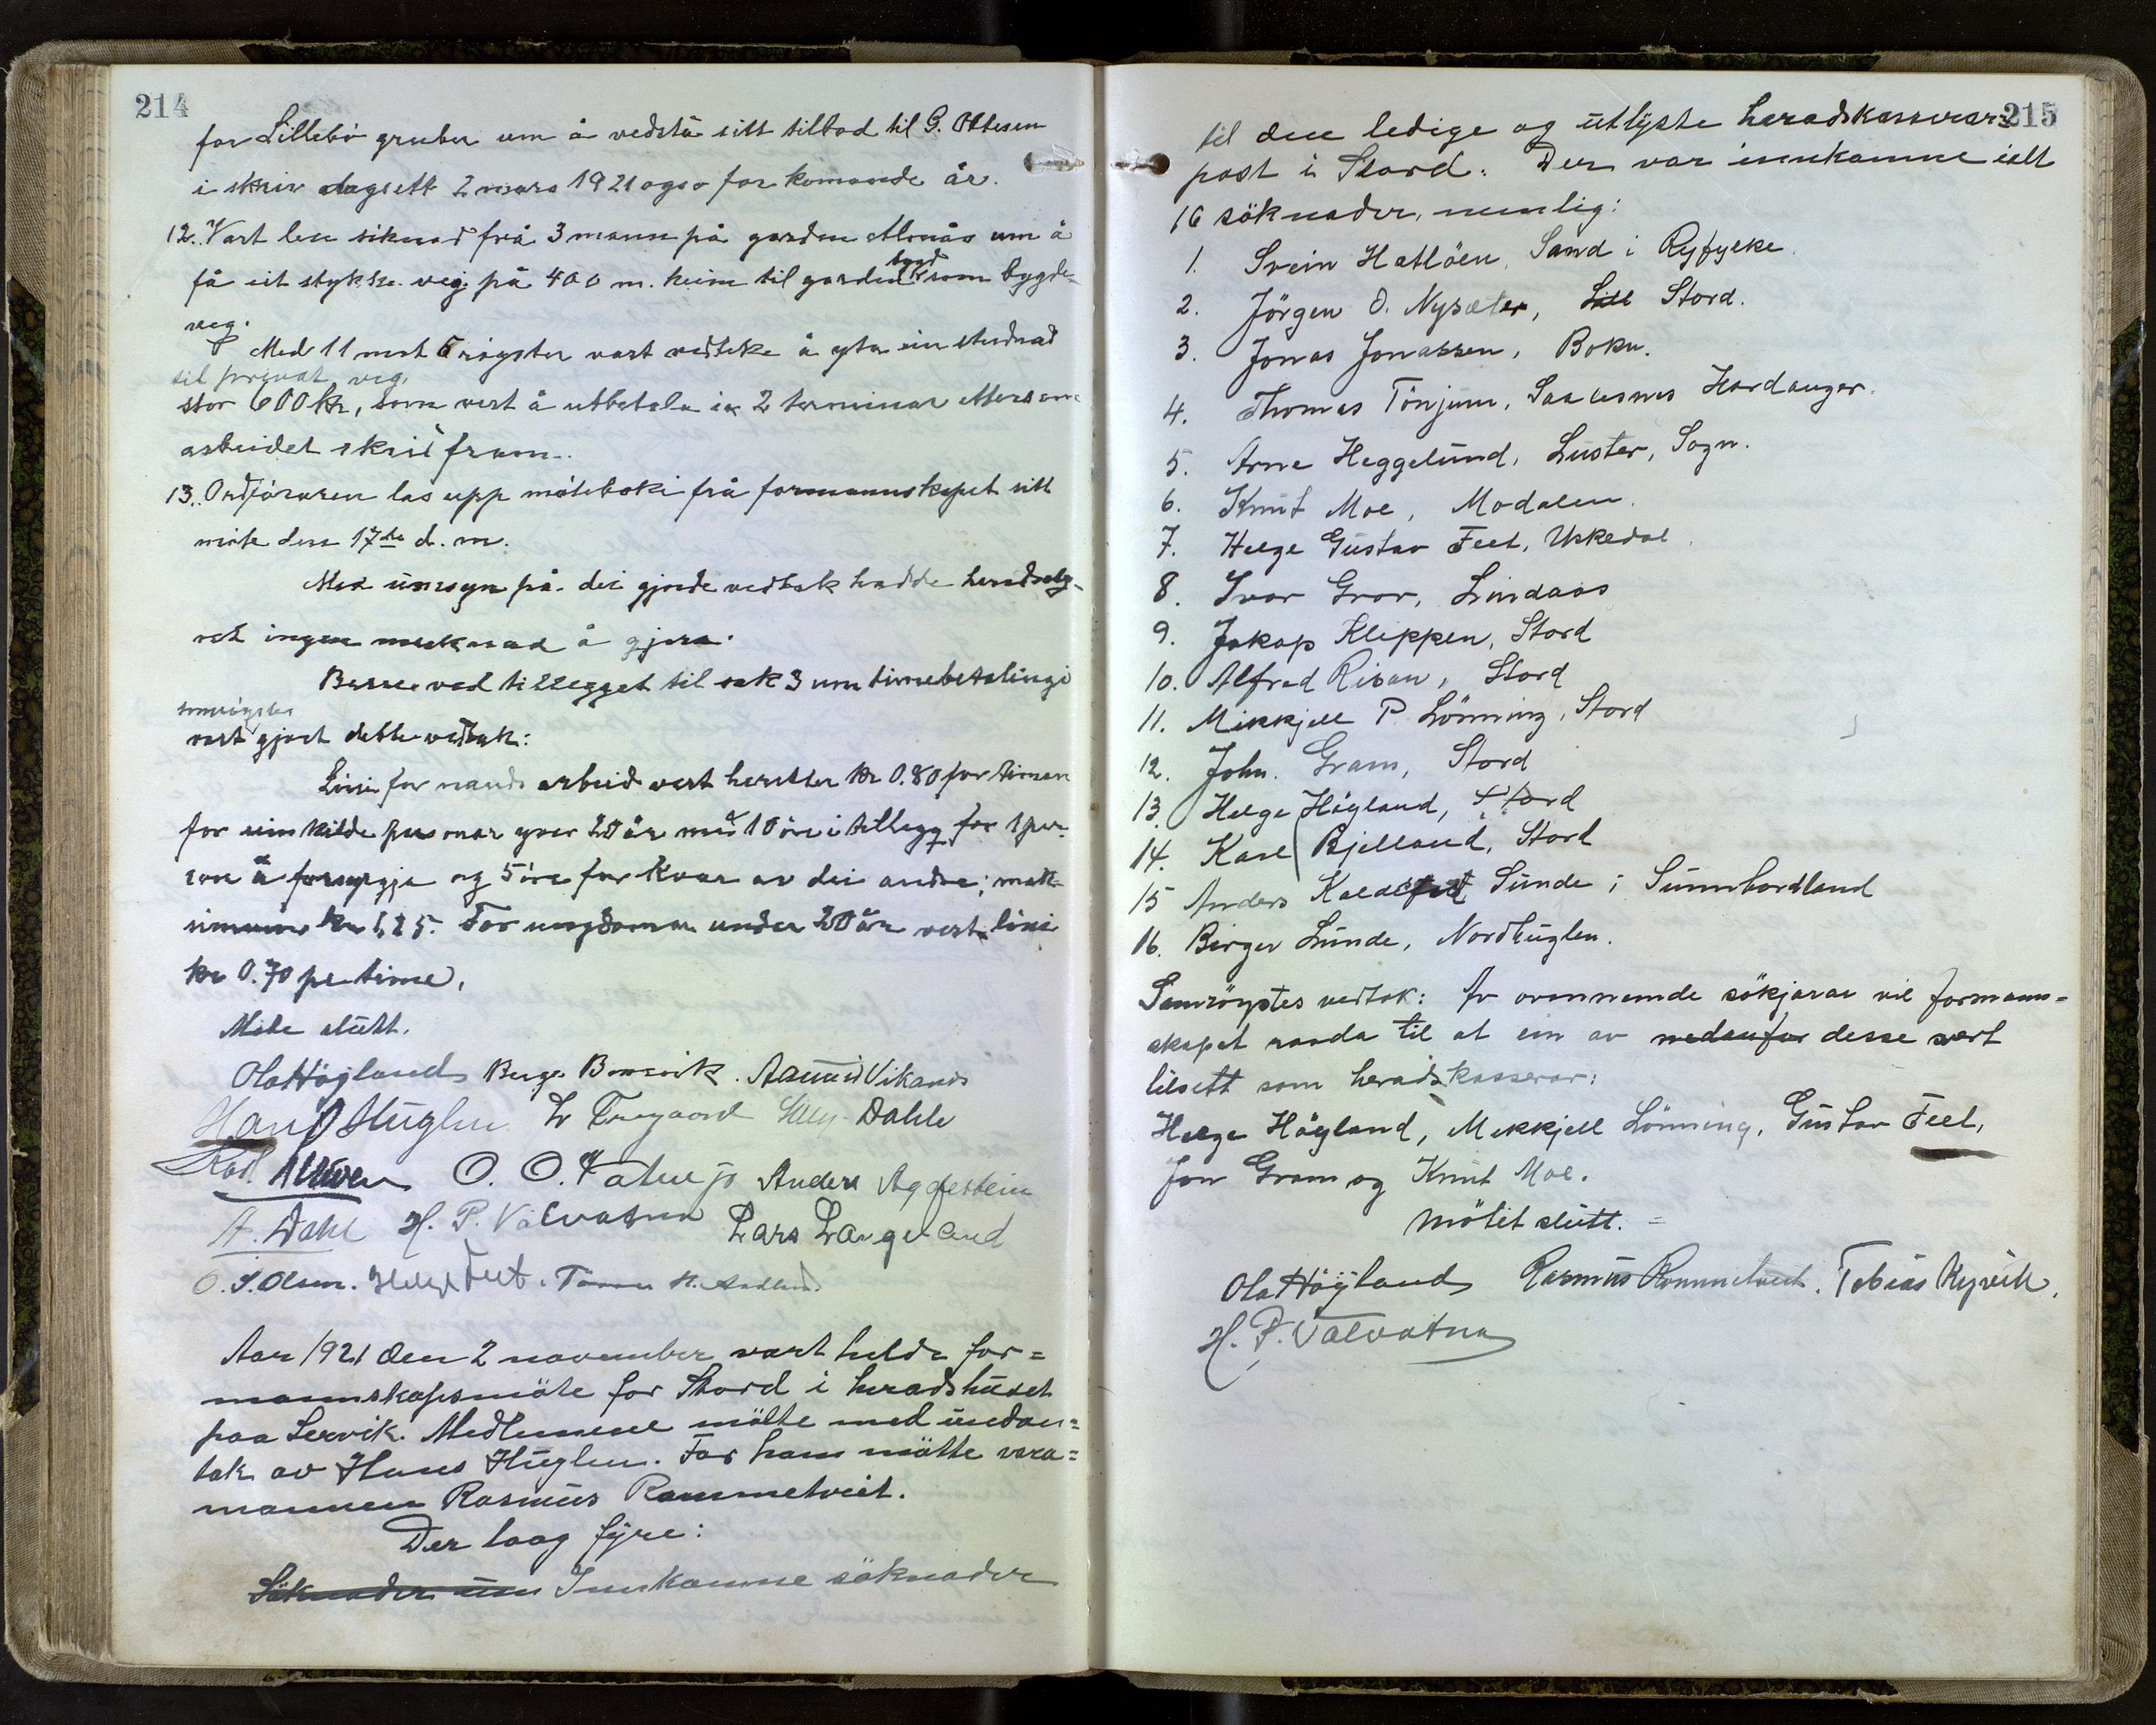 214
for Lillebö gruber um å vedstå sitt tilbod til G. Ottesen
i skriv dagsett 2 mars 1921 ogso for komande år.
12. Vart lese söknad frå 3 mann på garden Almås um å
få eit stykke veg på 400 m. heim til garden bygd som bygde-
veg.
Med 11 mot 5 röyster vart vedteke å yta ein studnad
til privat veg,
stor 600 kr, som vert å utbetala i 2 terminar ettersom
arbeidet skrid fram.
13. Ordföraren las upp möteboki frå formannskapet sitt
möte den 17de d. m.
Med umsyn på dei gjorde vedtak hadde heradsty-
ret ingen merknad å gjera.
Berre ved tillegget til sak 3 um timebetalingi
samröystes
vart gjort dette vedtak:
Löni for nauds arbeid vert heretter kr 0.80 for timen
for einskilde personar yver 20 år med 10 öre i tillegg for 1 per-
son å forsyrgja og 5 öre for kvar av dei andre; mak-
simum kr 1,25. For ungdomar under 20 år vert löni
kr 0.70 pr. time.
Möte slutt.
Ola Höyland Berge Aamund Vikanes
Hans Huglen Dahle
Karl O. O. Vatne jr Anders Agdestein
A. Dahl H. P. Valvatna Lars Langeland
O. S. Olsen. Helge
Aar 1921 den 2 november vart helde for=
mannskapsmöte for Stord i heradshuset
paa Lervik. Medlemene mötte med undan=
tak av Hans Huglen. For ham mötte vara=
mannen Rasmus Rommetveit.
Der laag fyre:
Söknader um Innkomne söknader
215
til den ledige og utlyste heradskasserar=
post i Stord. Der var innkomne ialt
16 söknader, nemlig:
1. Svein Hatlöen, Sand i Ryfylke.
2. Jörgen O. Nysæter, Stord.
3. Jonas Jonassen, Bokn.
4. Thomas Tönjum, Hardanger.
5. Arne Heggelund, Luster, Sogn.
6. Knut Moe, Modalen.
7. Helge Gustav Feet, Uskedal.
8. Ivar Gror, Lindaas
9. Jakop Klippen, Stord
10. Alfred Risan, Stord
11. Mikkjell P. Lönning, Stord
12. John. Gram, Stord
13. Helge Höyland, Stord
14. Karl Bjelland, Stord
15 Anders Sunde i Sunnhordland
16. Birger Lunde, Nordhuglen.
Samröystes vedtok: Av ovannemde sökjarar vil formann=
skapet raada til at ein av nedanfor desse vert
tilsett som heradskasserar:
Helge Höyland, Mikkjell Lönning, Gustav Feet,
Jon Gram og Knut Moe.
Mötet slutt. =
Ola Höyland Rasmus Rommetveit. Tobias Kyvik.
H. P. Valvatna